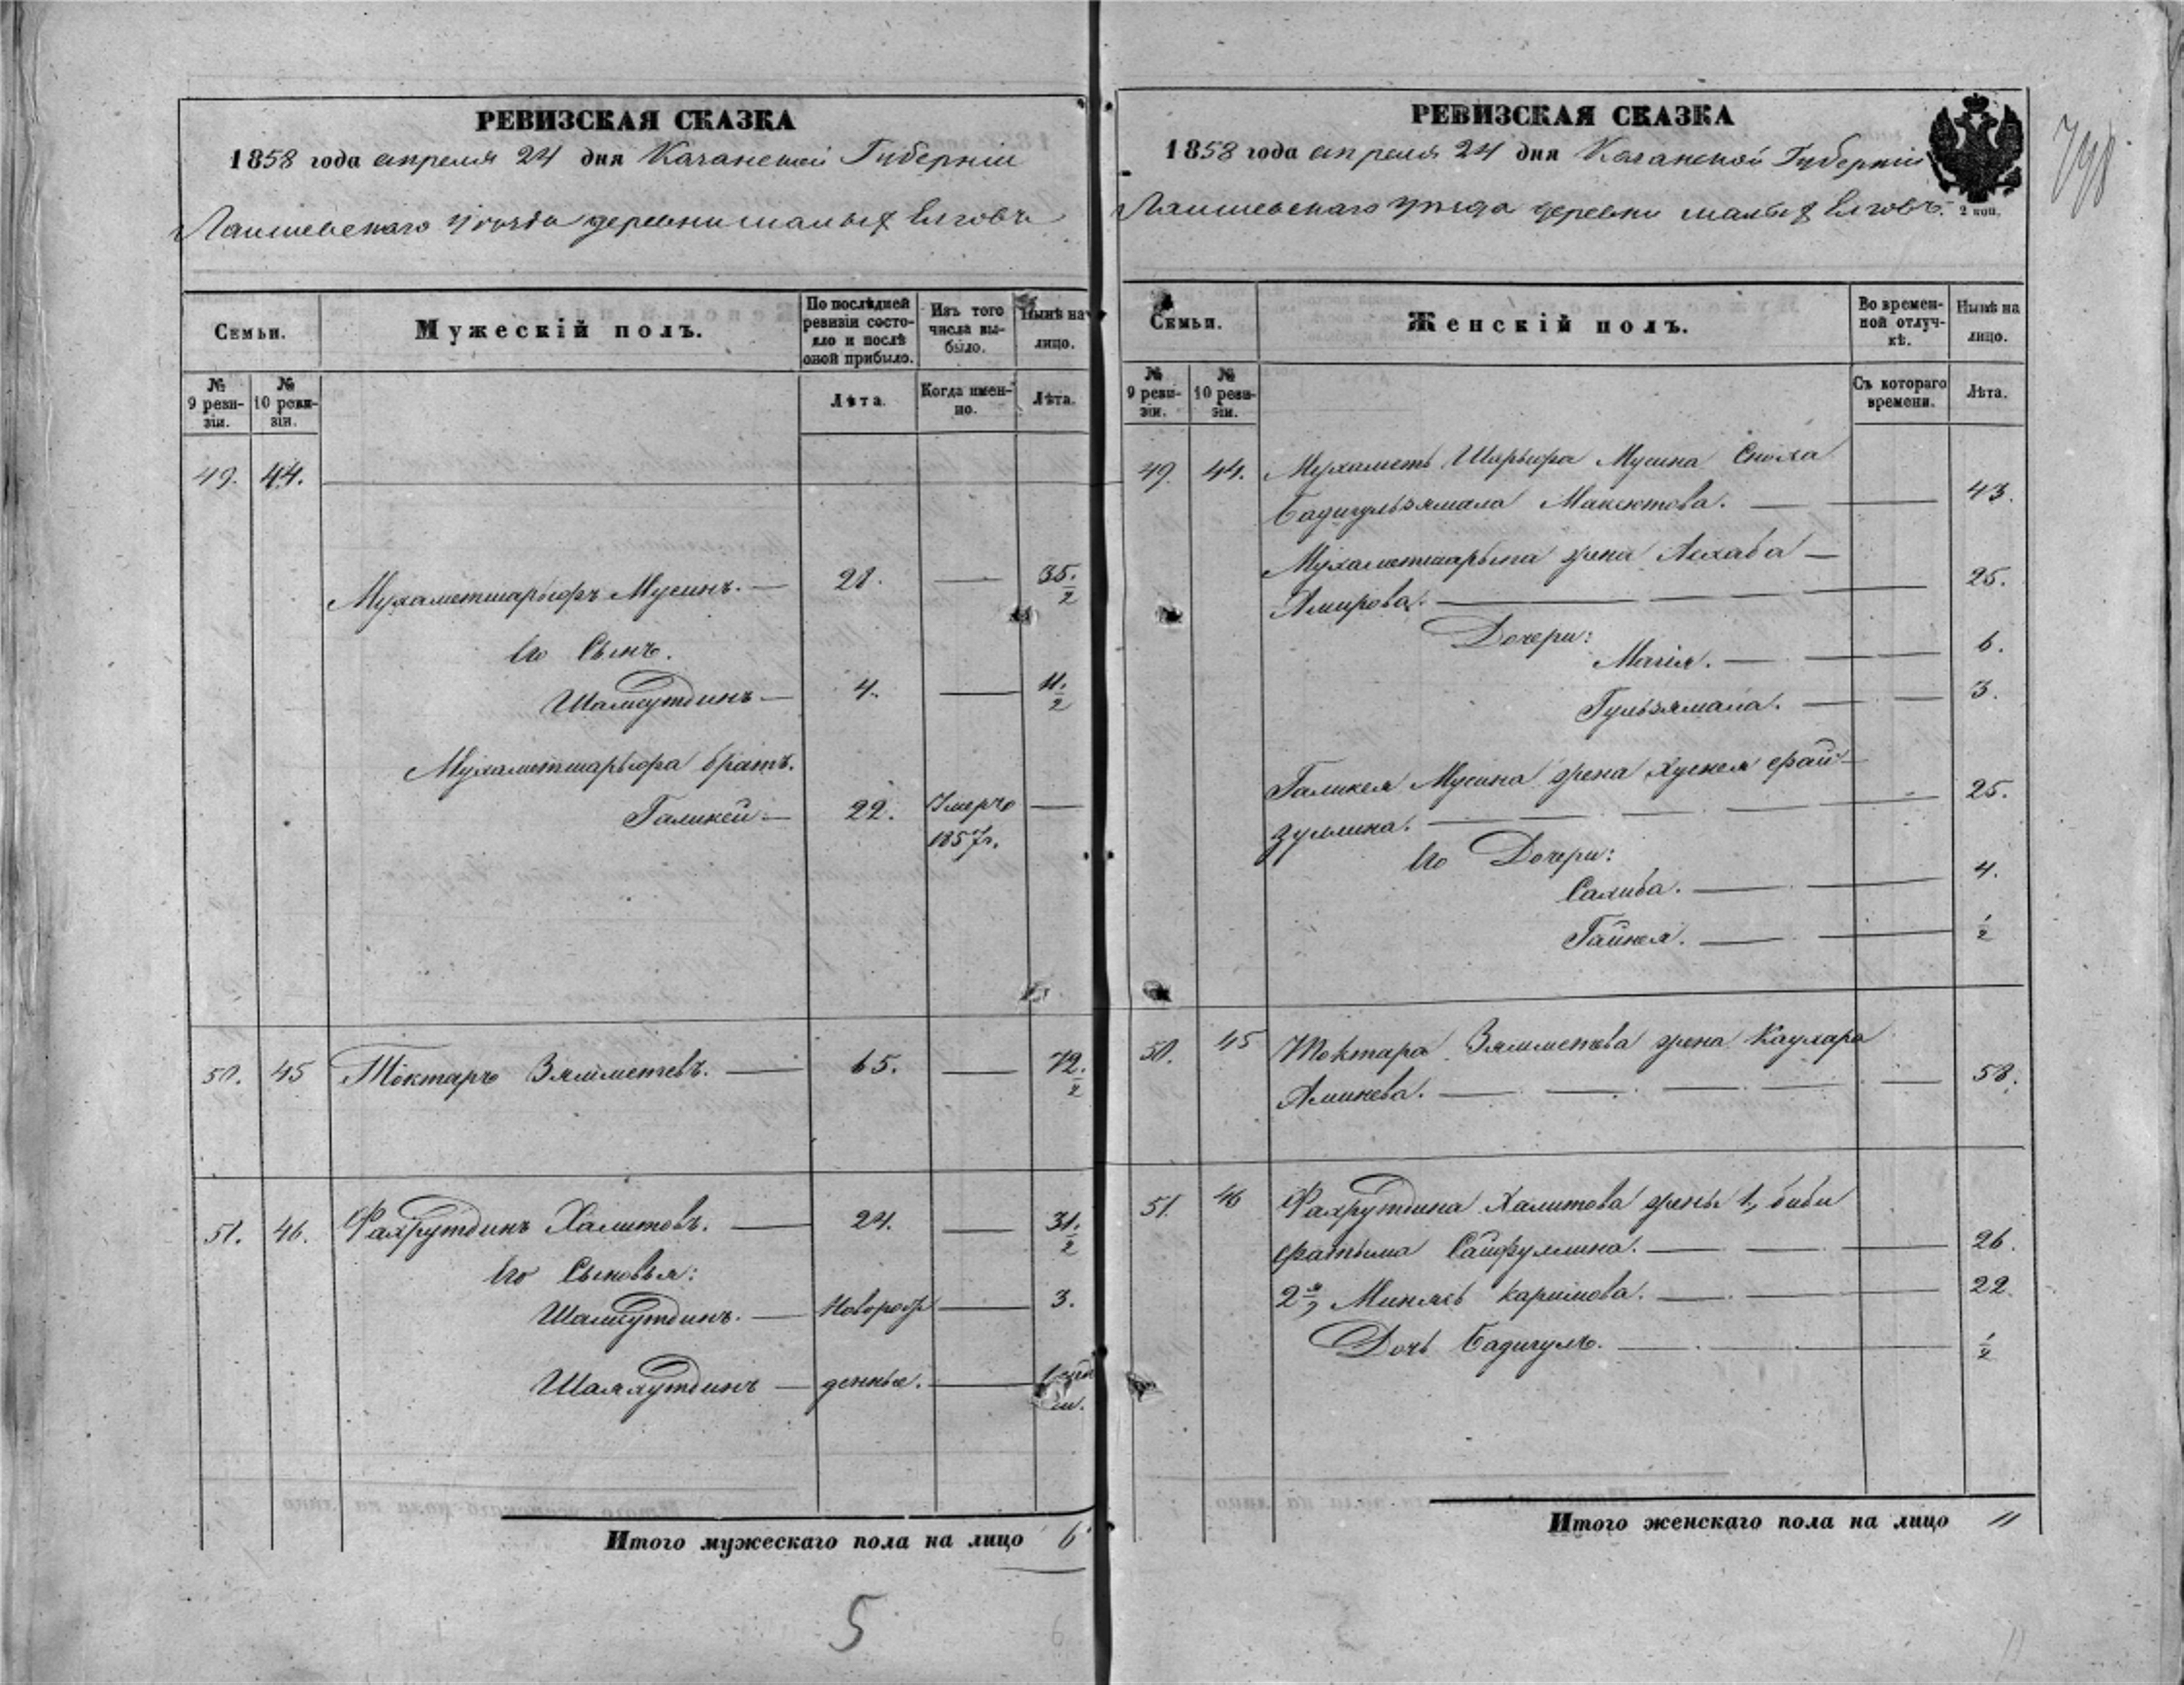 РЕВИЗСКАЯ СКАЗКА
1858 года апреля 24 дня Казанской Губерніи
Лаишевскаго уѣзда деревни малыхъ Елговъ
Семьи.
Мужескій полъ.
По послѣдней ревизіи состояло и послѣ оной прибыло.
Изъ того числа выбыло.
Нынѣ на лицо.
№ 9 ревизіи.
№ 10 ревизіи.
Лѣта.
Когда именно.
Лѣта.
49. 44.
Мухаметшарыфъ Мусинъ. — 28. — 35. 1/2
Его Сынъ.
Шамсутдинъ — 4. — 11. 1/2
Мухаметшарыфа братъ.
Галикей — 22. Умеръ —
1857 г.
50. 45 Токтаръ Зялилетевъ. — 65. — 72. 1/2
51. 46. Фахрутдинъ Халитовъ. — 24. — 31. 1/2
Его Сыновья:
Шамсутдинъ. — Новорож — 3.
Шаяхутдинъ — денные. — 1
Итого мужескаго пола на лицо 6
5
РЕВИЗСКАЯ СКАЗКА
1858 года апреля 24 дня Казанской Губерніи
2 коп.
798
Лаишевскаго уѣзда деревни малыхъ Елговъ.
Семьи.
Женскій полъ.
Во временной отлучкѣ.
Нынѣ на лицо.
№ 9 ревизіи.
№ 10 ревизіи.
Съ котораго времени.
Лѣта.
49. 44. Мухаметь Шарыфа Мусина Сноха
Бадигульзямала Максютова. — 43.
Мухаметшарыпа жена Асхаба —
Амирова. — 25.
Дочери:
Магія. — 6.
Гульзямала. — 3.
Галикея Мусина жена Хуснея фай-
зуллина. — 25.
Его Дочери:
Салиба. — 4.
Гайнея. — 1/2
50. 45 Токтара Зялилетева жена Каухара
Аминева. — 58.
51. 46 Фахрутдина Халитова жены 1, биби
фатыма Сайфуллина. — 26.
2я, Минлеб каримова. — 22.
Дочь Бадигулъ. — 1/2
Итого женскаго пола на лицо 11